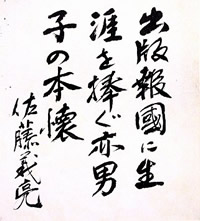 出版報國に生
涯を捧ぐ亦男
子の本懐
佐藤義亮